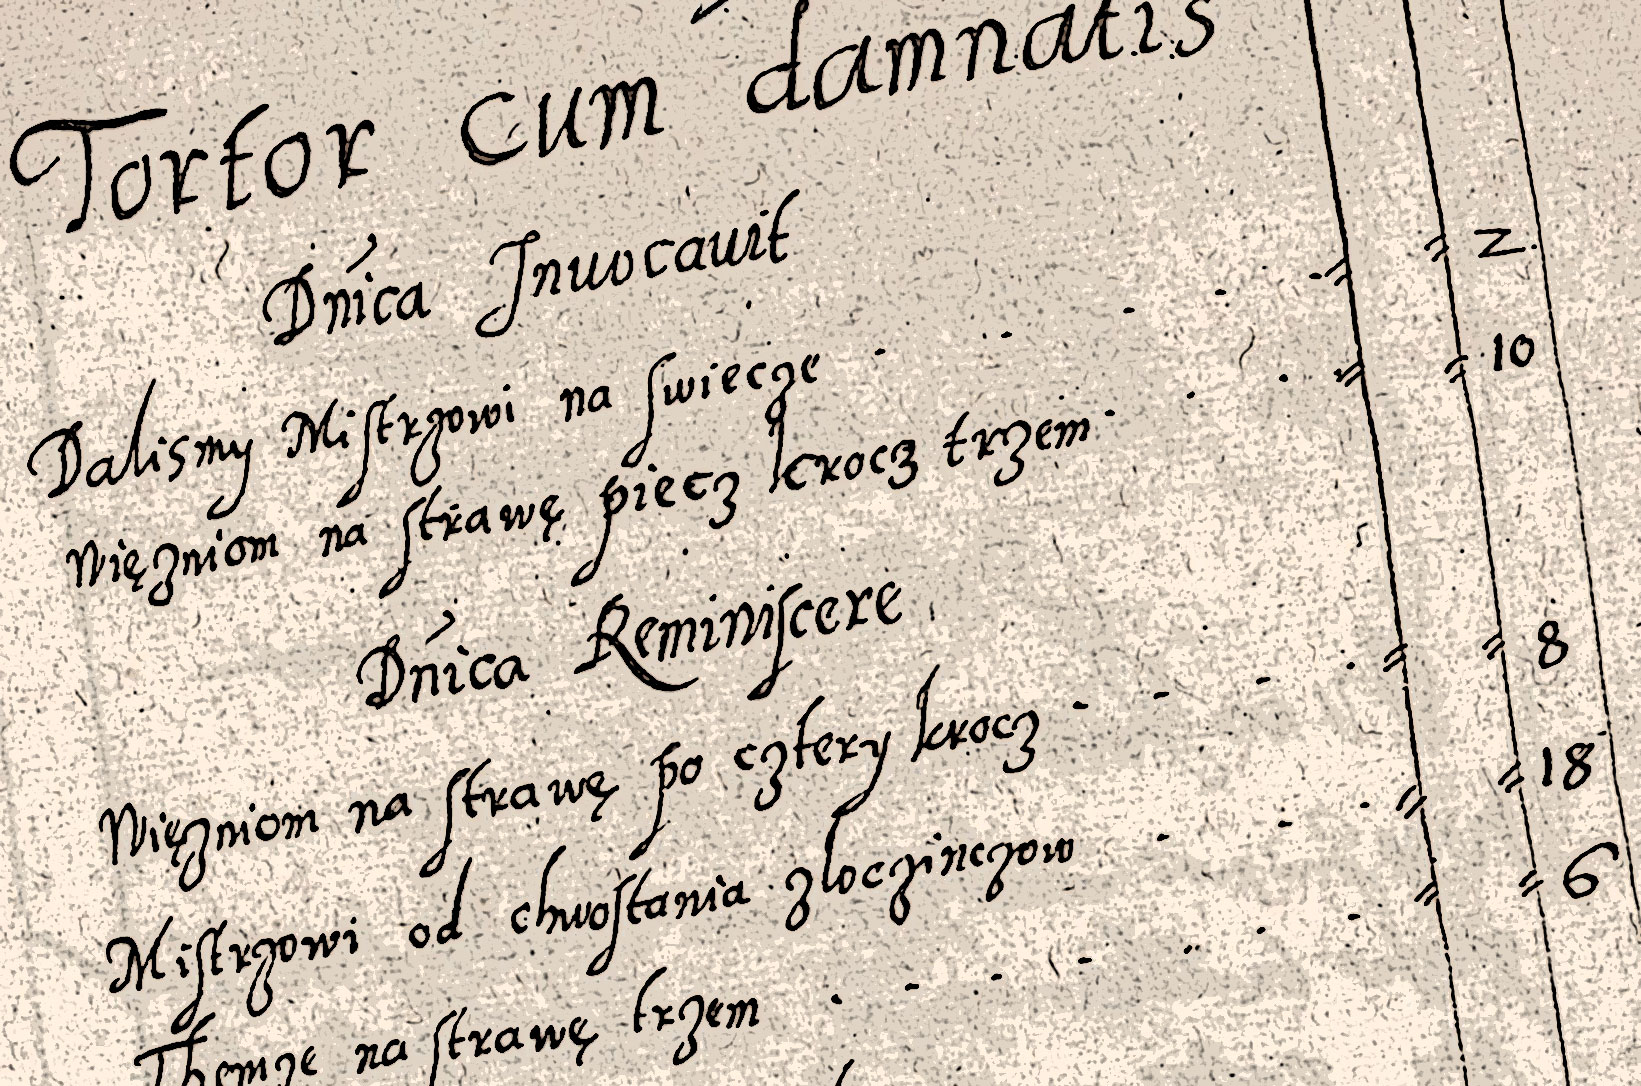 Tortor cum damnatis
Dnica Inuocauit
Dalismy Mistrzowi na swiecze 2
Więzniom na strawę piecz krocz trzem 10
Dnica Reminiscere
Więzniom na strawę po cztery krocz 8
Mistrzowi od chwostania zloczinczow 18
Themze na strawę trzem 6